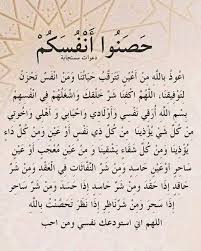 حَصِّنُوا أَنْفُسَكُمْ
دعوات مستجابة
اعوذ بالله من اعْيُنٍ تترقب حياتنا ومن انفس تحزن
لِتوفيقنا، اللهم اكفنا شر خلقك واشغلهم في انفسهم
بسم الله أرقي نفسي وأولادي واحبابي و أهلي واخوتي
من كل شيءٍ يؤذينا من كل ذي شرٍ يؤذينا ومن
كل شخصٍ يشقينا ومن عينٍ معجبٍ أو عين
ساحرٍ أو عين حاسدٍ ومن شر النفاثات في العقد ومن شر
حاقدٍ إذا حقد ومن شر حاسدٍ إذا حسد ومن شر ساحرٍ
إذا سحر ومن شر ناظرٍ إذا نظر تحصنت بالله
اللهم اني استودعك نفسي ومن احب